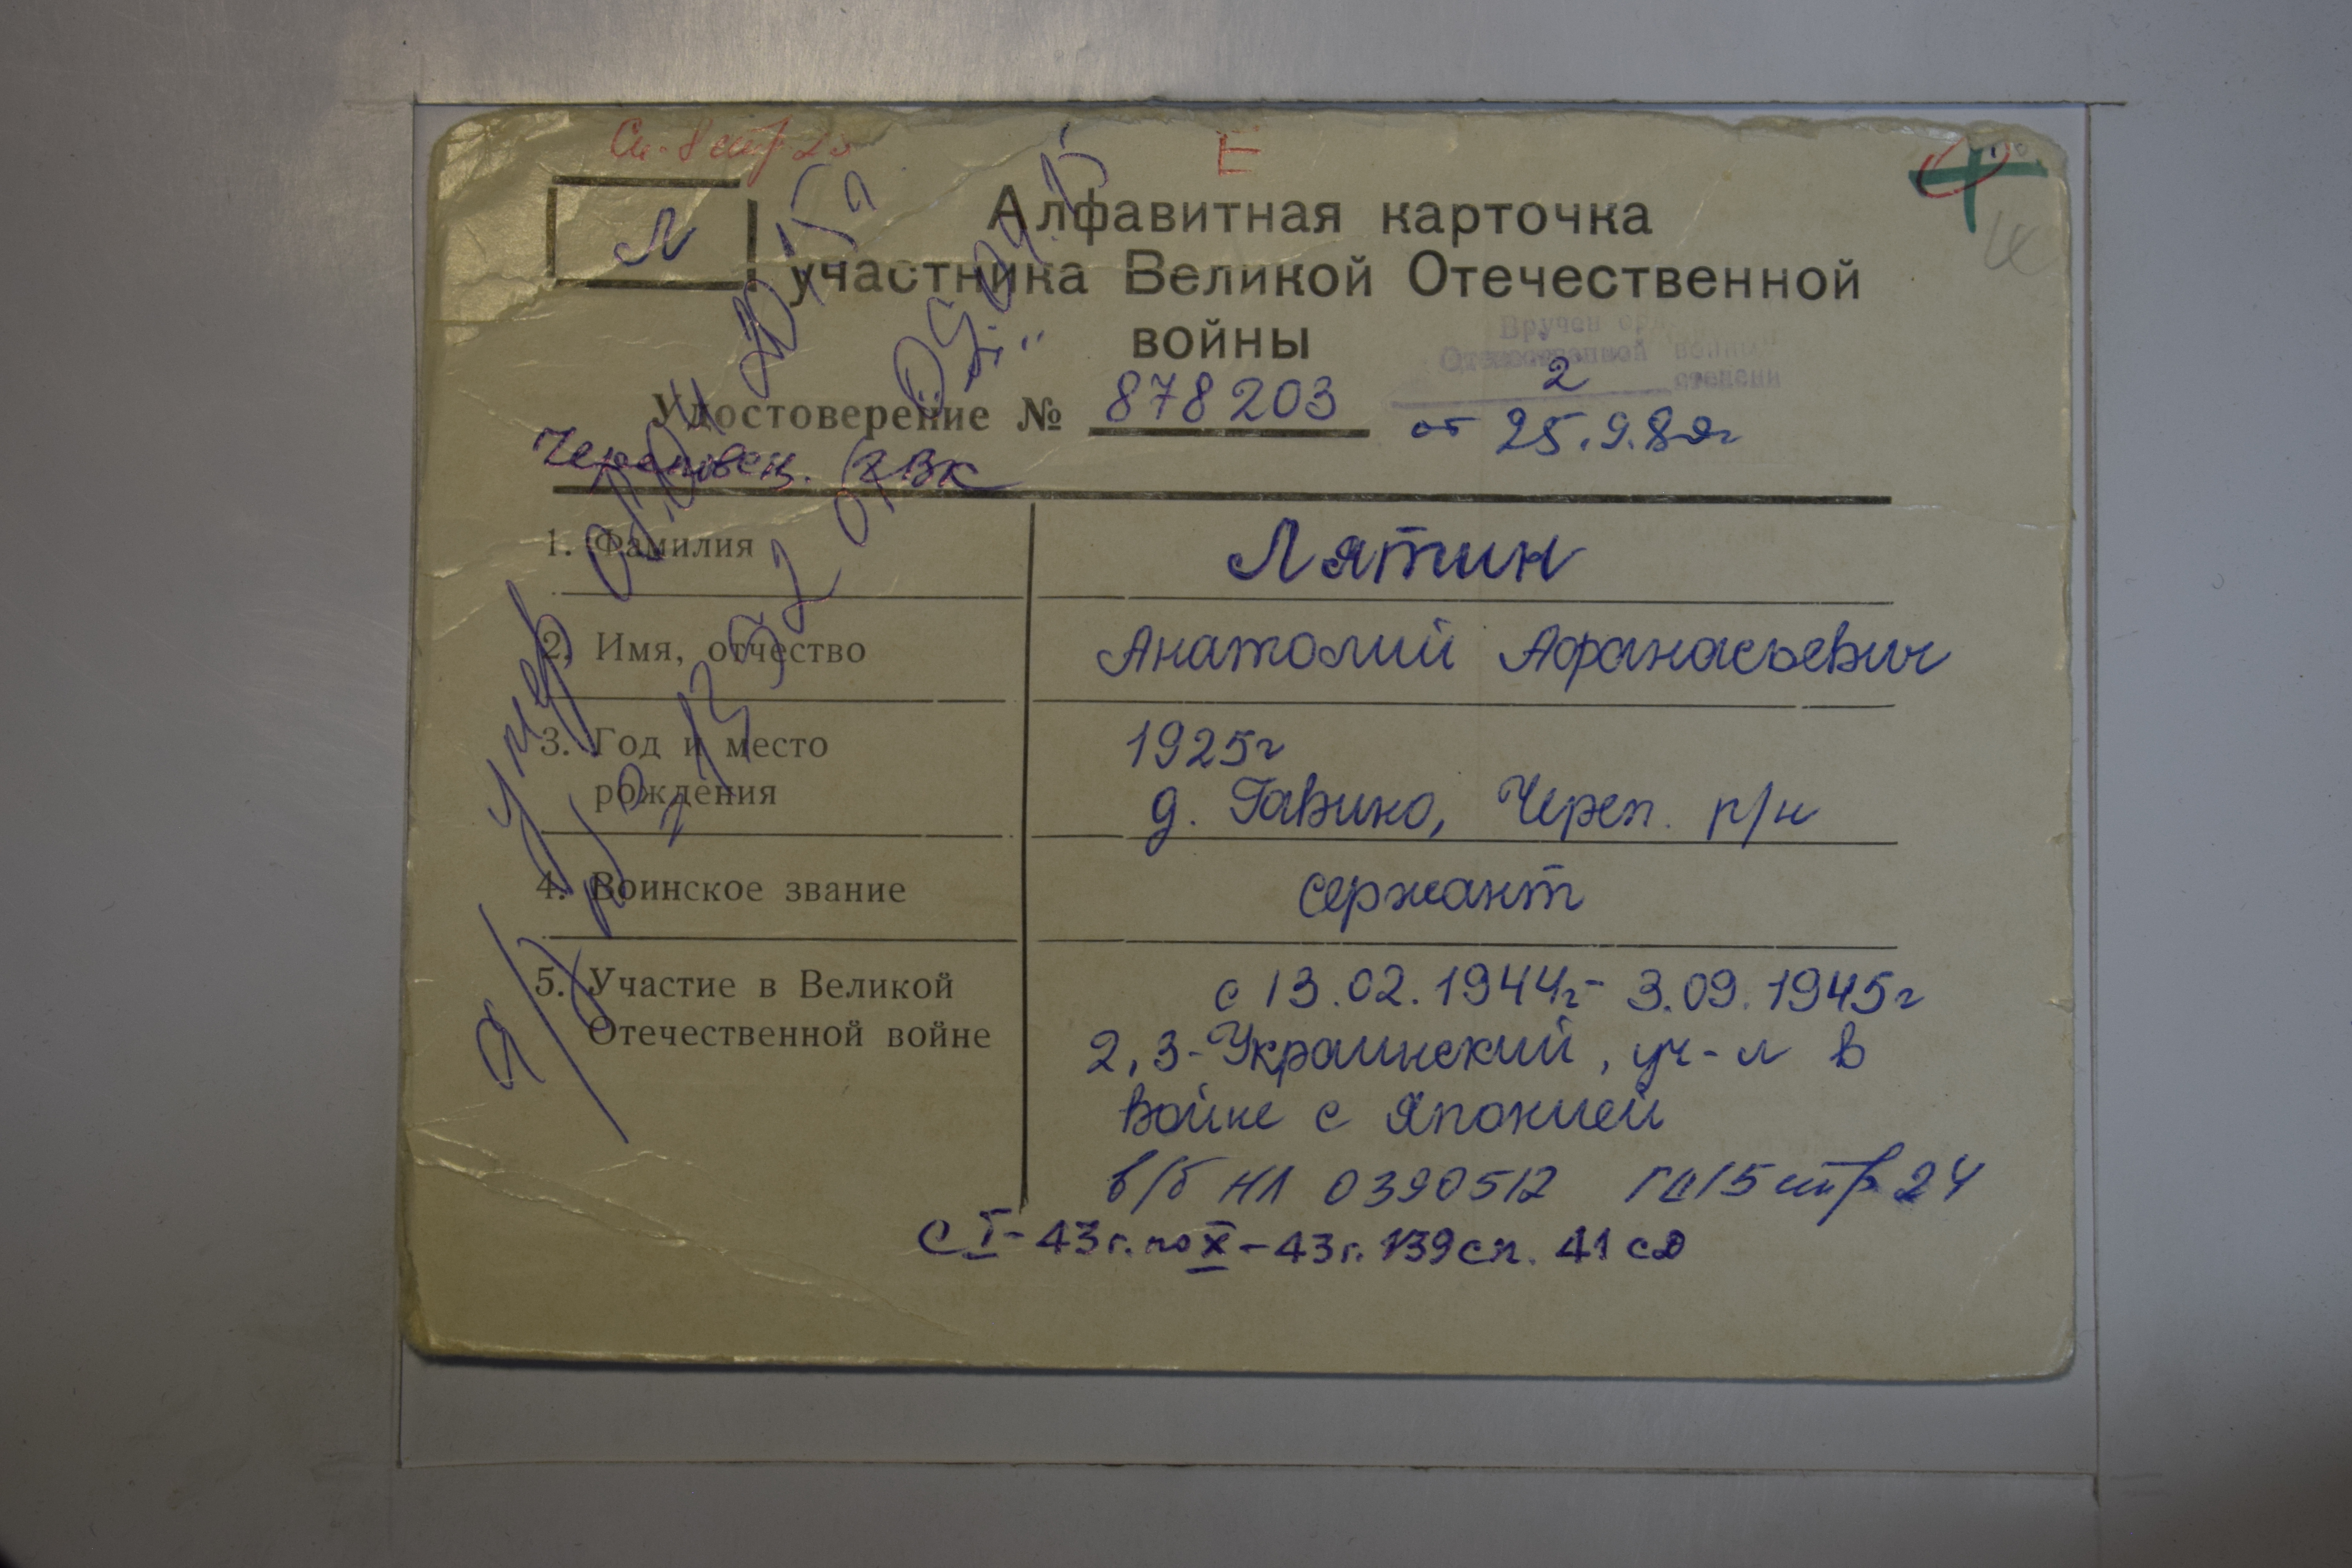 Е
Л
Алфавитная карточка
участника Великой Отечественной
войны
Вручен
Отечественной войны
2 степени
Удостоверение № 878203
от 25.9.8
Черповец. РВК
1. Фамилия Лятин
2. Имя, отчество Анатолий Афанасьевич
3. Год и место 1925г
рождения д. Гавино, Череп. р/н
4. Воинское звание сержант
5. Участие в Великой с 13.02.1944г - 3.09.1945г
Отечественной войне 2,3-Украинский, уч-л в
войне с Японией
в/б НЛ 0390512 стр 24
с I-43г. по X-43г. 139 сп. 41 сд
умер